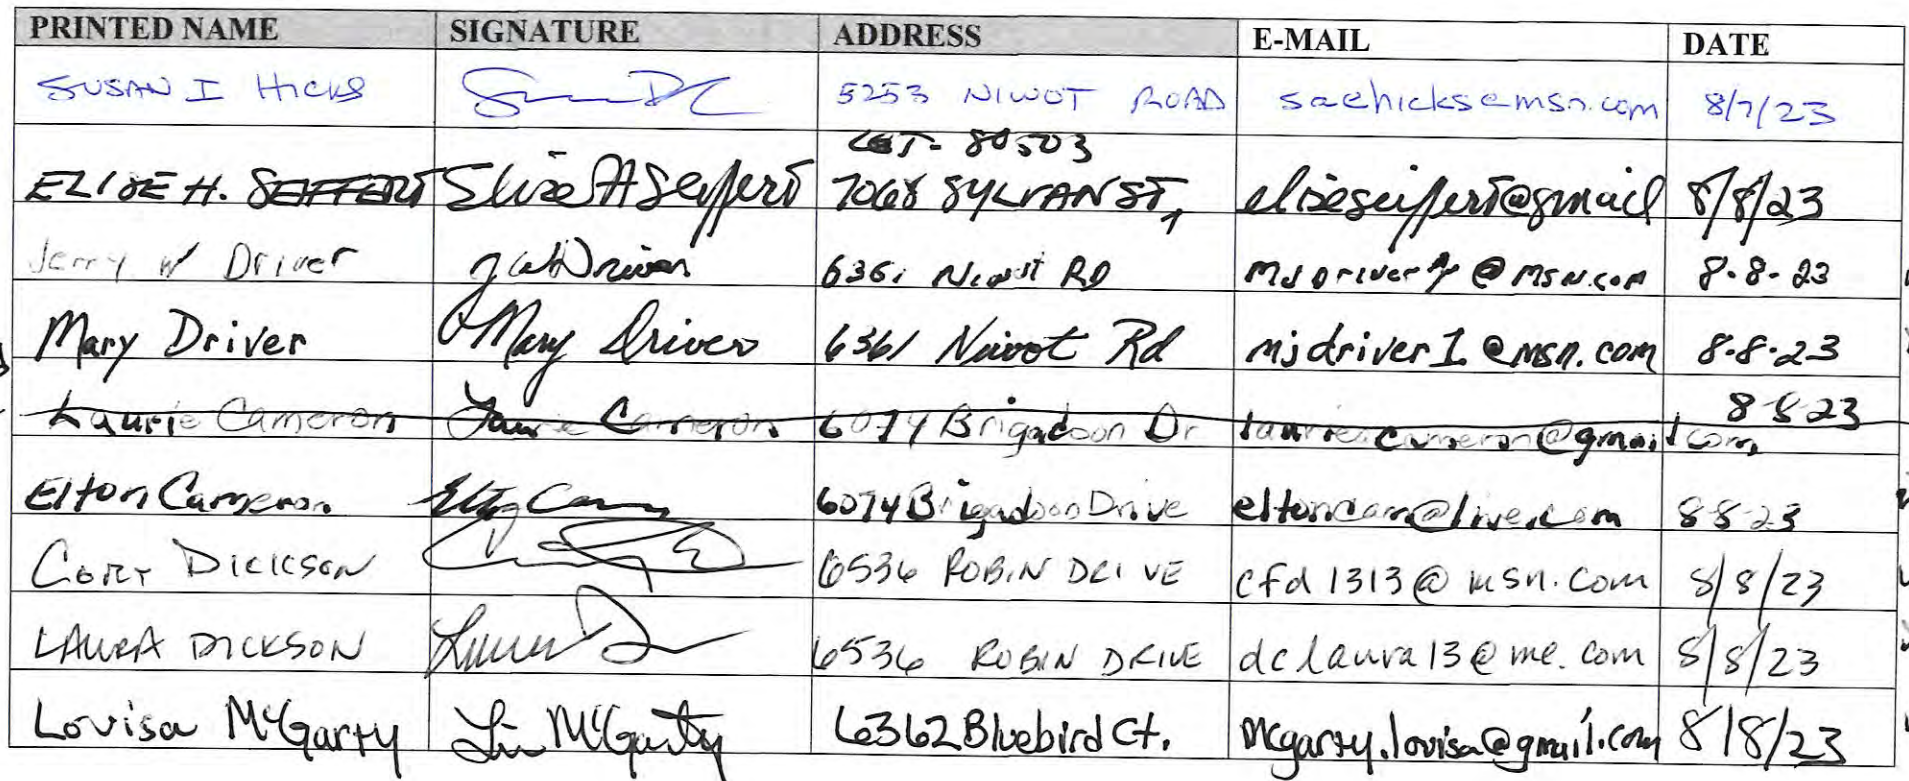 PRINTED NAME SIGNATURE ADDRESS E-MAIL DATE
SUSAN I HICKS 5253 NIWOT ROAD saehicks@msn.com 8/7/23
80503
ELISE H. SEIFFERT Elise H Seiffert 7068 SYLVAN ST, eliseseiffert@gmail 8/8/23
Jerry W Driver JW Driver 6361 Niwot RD @MSN.com 8-8-23
Mary Driver Mary Driver 6361 Niwot Rd mjdriver1@msn.com 8-8-23
Laurie Cameron Laurie Cameron 6074 Brigadoon Dr lauriecameron@gmail.com 8-8-23
Elton Cameron Elton Cam 6074 Brigadoon Drive eltoncam@live.com 8-8-23
CORY DICKSON 6536 ROBIN DRIVE cfd1313@msn.com 8/8/23
LAURA DICKSON 6536 ROBIN DRIVE dclaura13@me.com 8/8/23
Lovisa McGarry McGarry 6362 Bluebird Ct. mcgarry.lovisa@gmail.com 8/8/23